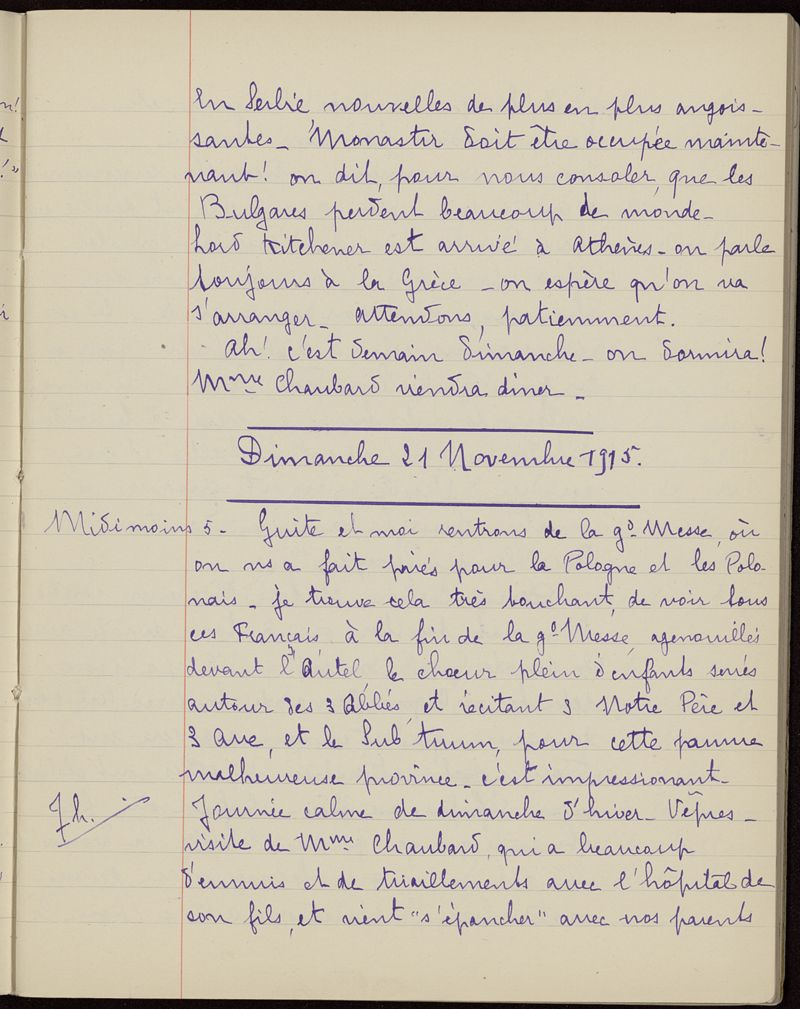 En Serbie, nouvelles de plus en plus angois-
santes_ Monastir doit être occupée mainte-
nant! on dit, pour nous consoler, que les
Bulgares perdent beaucoup de monde_
Lord Kitchener est arrivé à Athènes_ on parle
toujours à la Grèce _ on espère qu'on va
s'arranger_ attendons, patiemment.
Ah! c'est demain dimanche_ on dormira!
Mme Chaubard viendra diner_
Dimanche 21 Novembre 1915.
Midi moins 5_ Guite et moi rentrons de la gd Messe, où
on ns a fait priés pour la Pologne et les Polo-
nais_ je trouve cela très touchant, de voir tous
ces Français à la fin de la gd Messe, agenouillés
devant l'Autel, le chœur plein d'enfants serrés
autour des 3 Abbés, et récitant 3 Notre Père et
3 Ave, et le Sub tuum, pour cette pauvre
malheureuse province_ c'est impressionant_
7h. Journée calme de dimanche d'hiver_ Vêpres_
visite de Mme Chaubard, qui a beaucoup
d'ennuis et de tiraillements avec l'hôpital de
son fils, et vient "s'épancher" avec nos parents